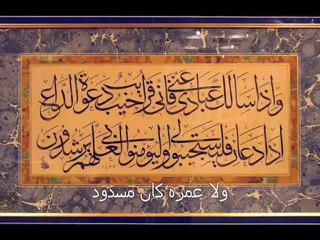 وإذا سألك عبادي عني فإني قريب أجيب دعوة الداع
إذا دعان فليستجيبوا لي وليؤمنوا بي لعلهم يرشدون
ولا عمره كان مسدود